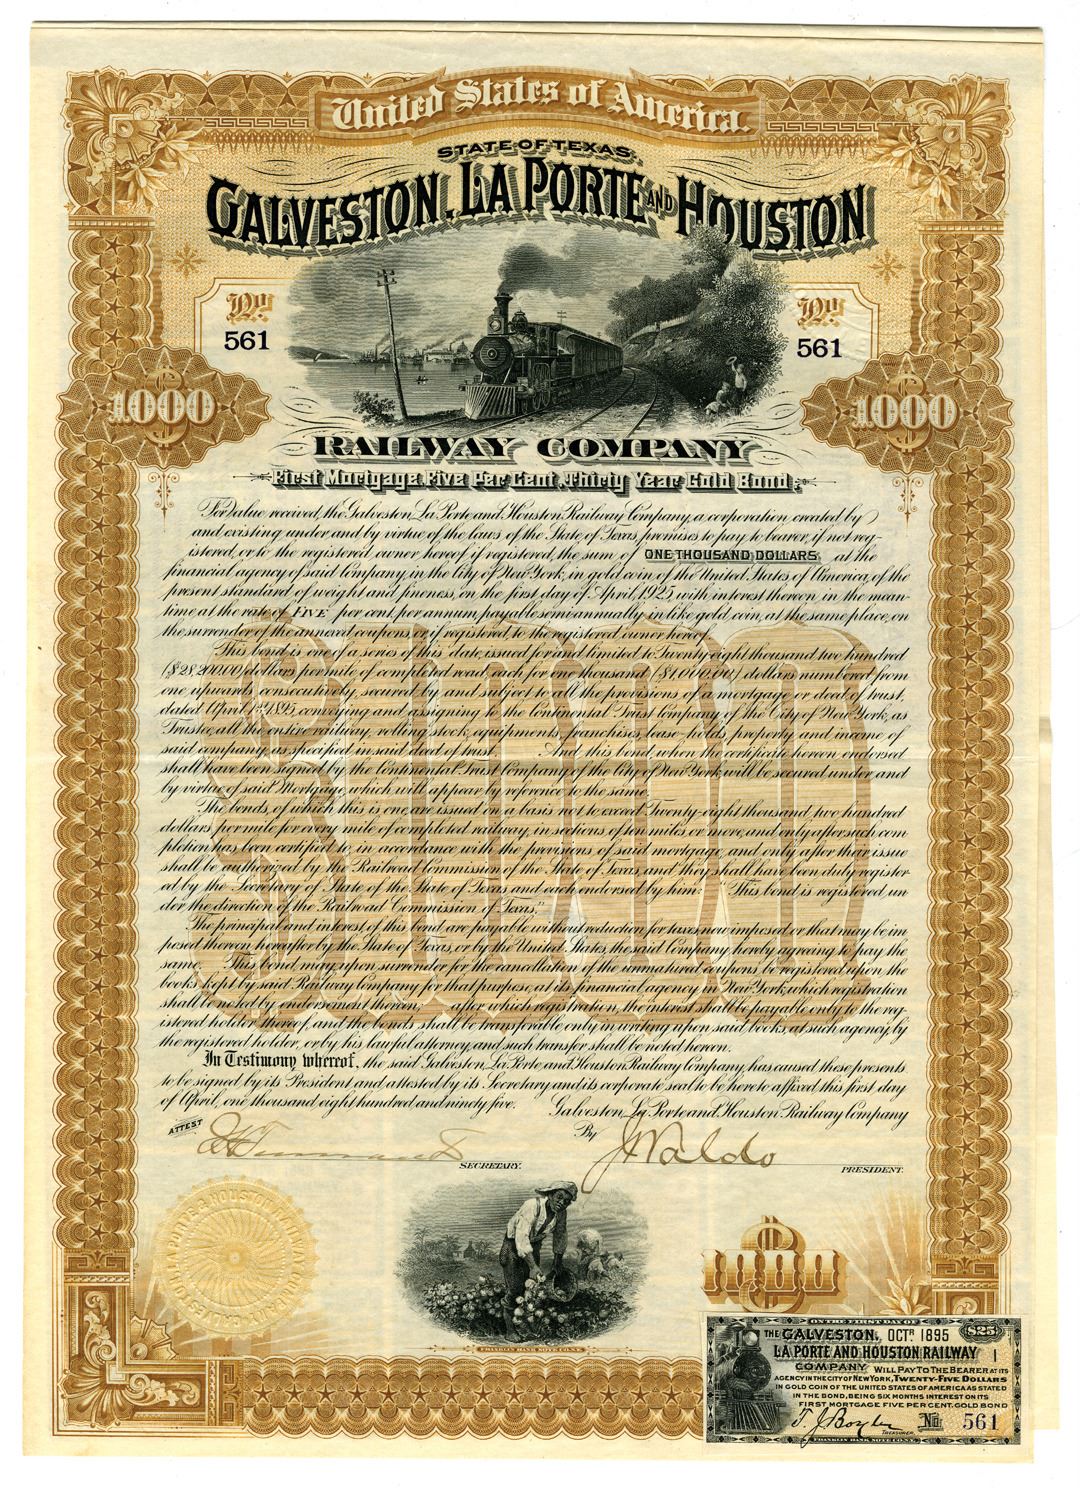 United States of America.
STATE OF TEXAS.
GALVESTON, LA PORTE AND HOUSTON
No. 561
No. 561
$1000
$1000
RAILWAY COMPANY
First Mortgage Five Per Cent. Thirty Year Gold Bond.
For value received, the Galveston, La Porte and Houston Railway Company, a corporation created by
and existing under and by virtue of the laws of the State of Texas, promises to pay to bearer, if not reg-
istered, or to the registered owner hereof if registered, the sum of ONE THOUSAND DOLLARS at the
financial agency of said Company, in the City of New York, in gold coin of the United States of America, of the
present standard of weight and fineness, on the first day of April, 1925, with interest thereon in the mean-
time at the rate of FIVE per cent. per annum, payable semi-annually in like gold coin, at the same place, on
the surrender of the annexed coupons, or if registered, to the registered owner hereof.
This bond is one of a series of this date, issued for and limited to Twenty-eight thousand two hundred
($28,200.00) dollars per mile of completed road, each for one thousand ($1,000.00) dollars numbered from
one upwards, consecutively, secured by and subject to all the provisions of a mortgage or deed of trust,
dated April 1st, 1895, conveying and assigning to the Continental Trust Company of the City of New York, as
Trustee, all the entire railway, rolling stock, equipments, franchises, lease-holds, property and income of
said company, as specified in said deed of trust. And this bond, when the certificate hereon endorsed
shall have been signed by the Continental Trust Company of the City of New York, will be secured under and
by virtue of said Mortgage, which will appear by reference to the same.
The bonds, of which this is one, are issued on a basis not to exceed Twenty-eight thousand two hundred
dollars per mile for every mile of completed railway, in sections of ten miles or more, and only after such com-
pletion has been certified to, in accordance with the provisions of said mortgage, and only after their issue
shall be authorized by the Railroad Commission of the State of Texas, and they shall have been duly register-
ed by the Secretary of State of the State of Texas and each endorsed by him: "This bond is registered un-
der the direction of the Railroad Commission of Texas."
The principal and interest of this bond are payable without reduction for taxes, now imposed or that may be im-
posed thereon, hereafter by the State of Texas, or by the United States, the said Company hereby agreeing to pay the
same. This bond may, upon surrender for the cancellation of the unmatured coupons be registered upon the
books, kept by said Railway Company for that purpose, at its financial agency in New York, which registration
shall be noted by endorsement thereon; after which registration, the interest shall be payable only to the reg-
istered holder thereof, and the bonds shall be transferable only in writing upon said books, at such agency, by
the registered holder, or by his lawful attorney, and such transfer shall be noted hereon.
In Testimony whereof, the said Galveston, La Porte and Houston Railway Company, has caused these presents
to be signed by its President and attested by its Secretary and its corporate seal to be hereto affixed this first day
of April, one thousand eight hundred and ninety five. Galveston, La Porte and Houston Railway Company
ATTEST By J Waldo
SECRETARY. PRESIDENT.
$1000
FRANKLIN BANK NOTE CO. N.Y.
ON THE FIRST DAY OF $25
THE GALVESTON, OCTR. 1895
LA PORTE AND HOUSTON RAILWAY 1
COMPANY WILL PAY TO THE BEARER AT ITS
AGENCY IN THE CITY OF NEW YORK, TWENTY-FIVE DOLLARS
IN GOLD COIN OF THE UNITED STATES OF AMERICA AS STATED
IN THE BOND, BEING SIX MONTHS INTEREST ON ITS
FIRST MORTGAGE FIVE PER CENT. GOLD BOND
No. 561
TREASURER.
FRANKLIN BANK NOTE CO. N.Y.